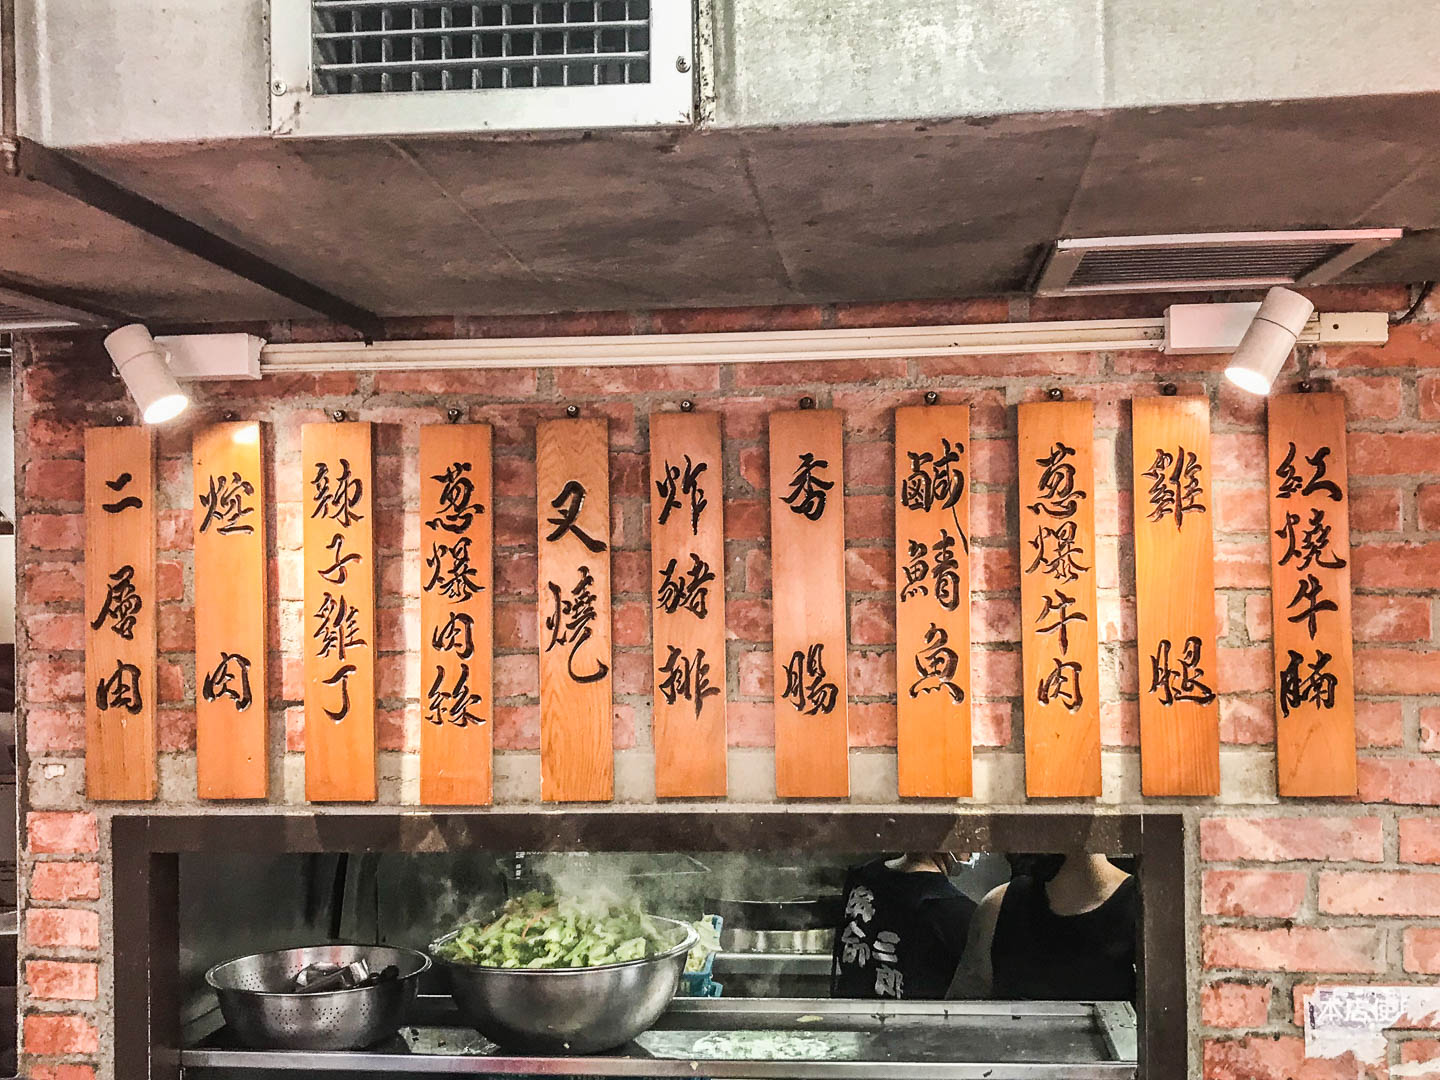 紅燒牛腩
雞腿
蔥爆牛肉
鹹鯖魚
香腸
炸豬排
叉燒
蔥爆肉絲
辣子雞丁
焢肉
二層肉
三郎
本店使